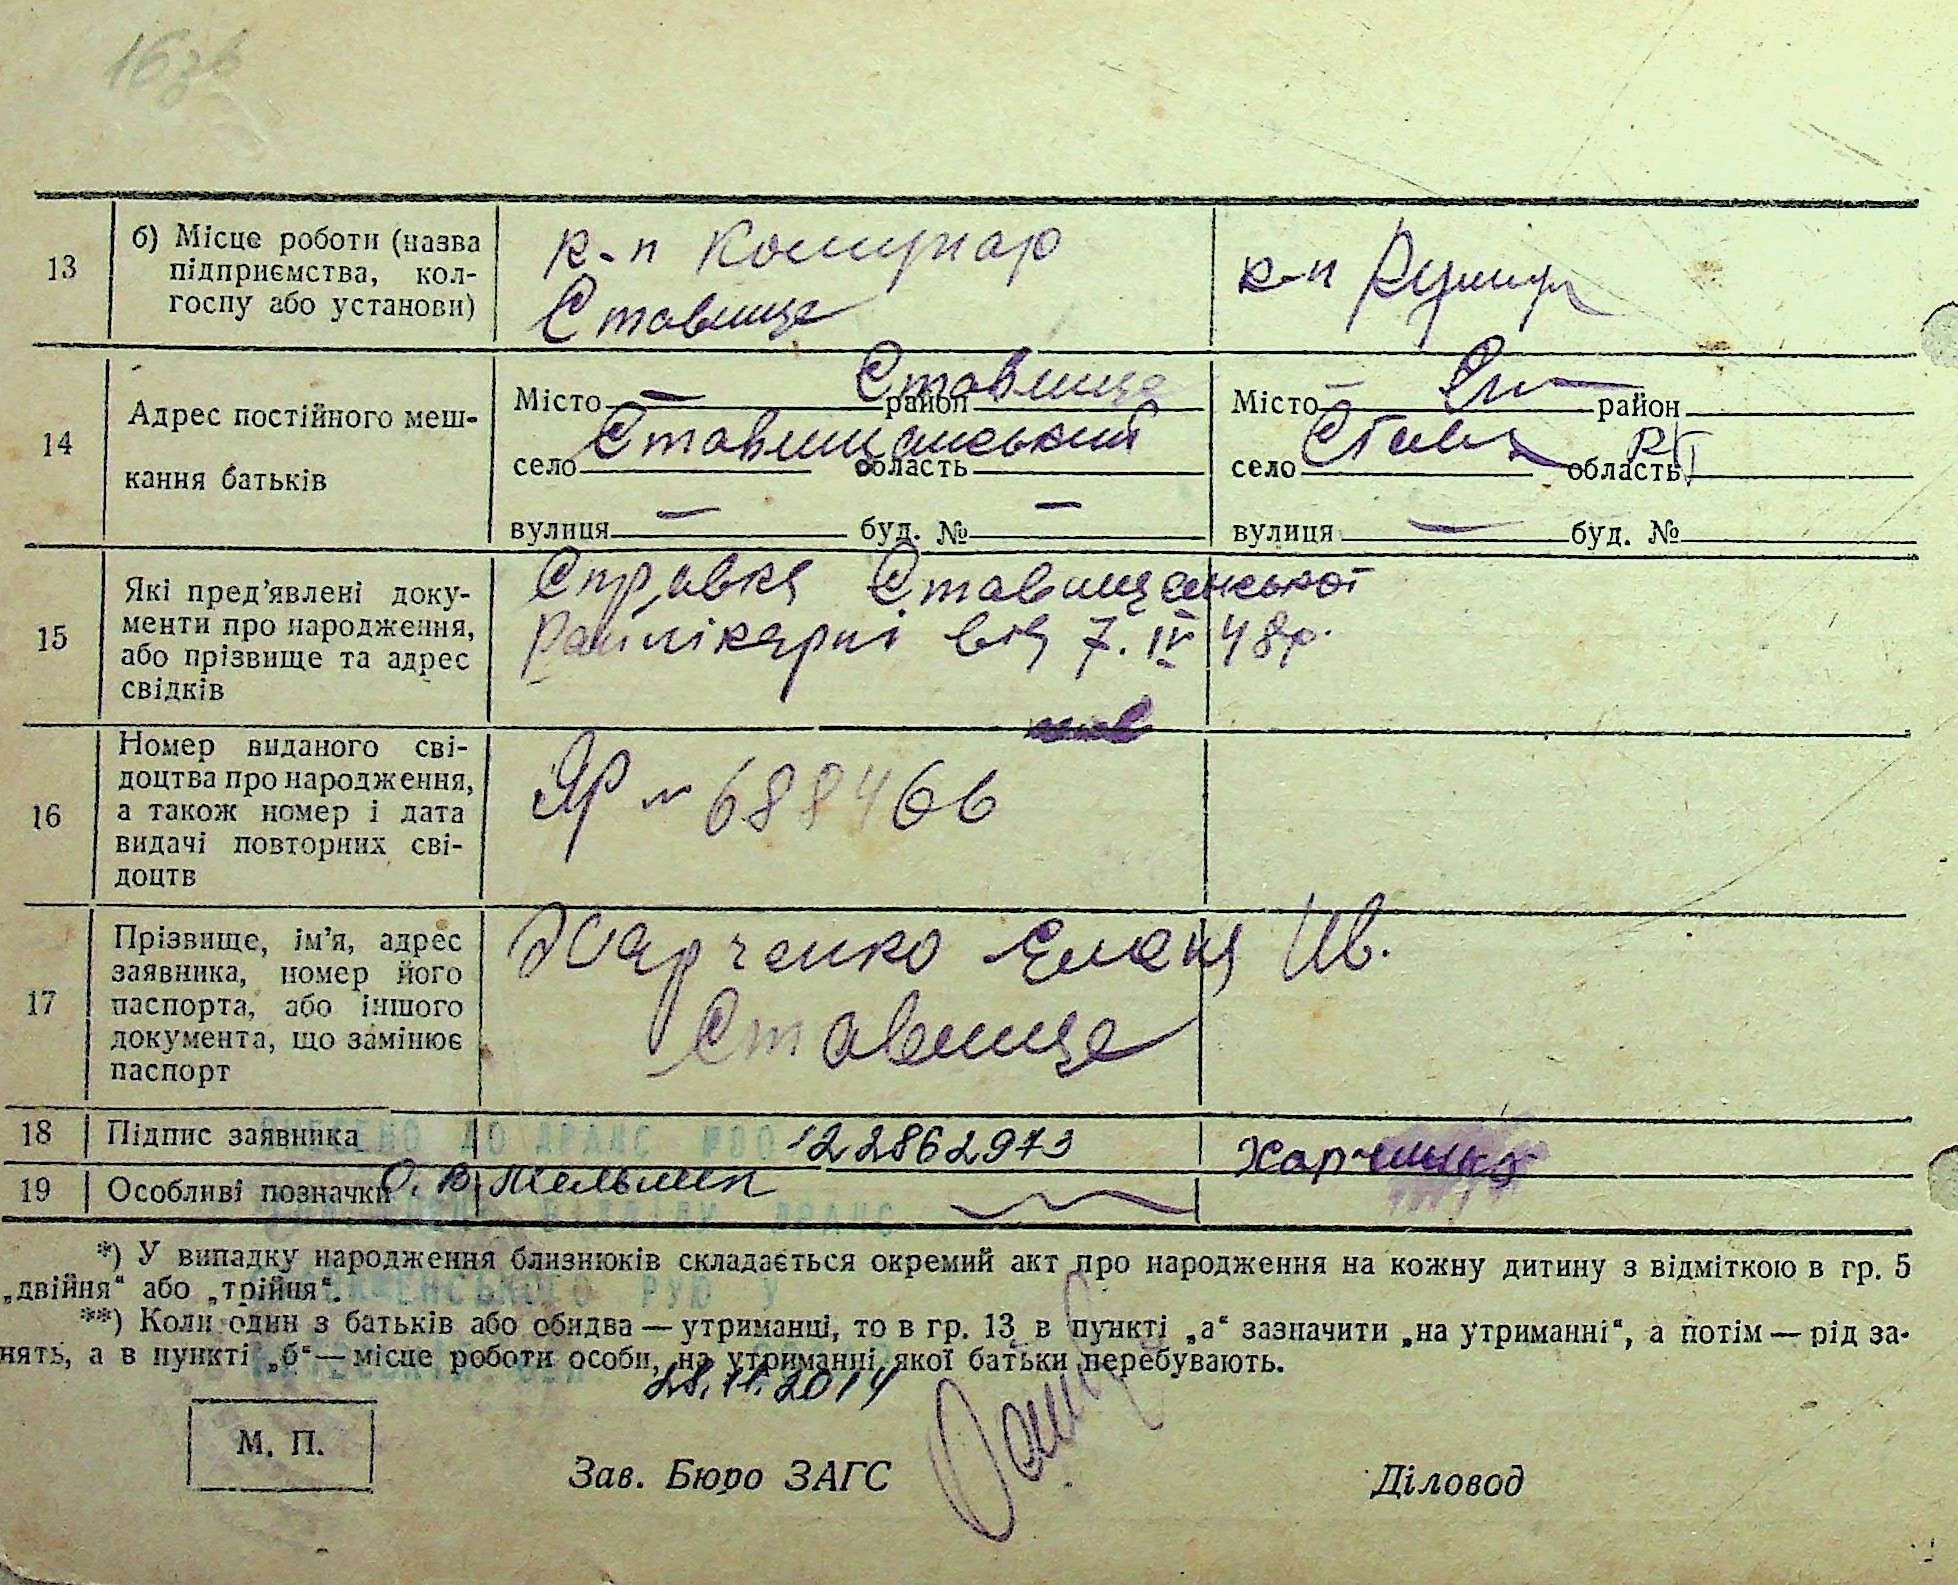 16зв
13
б) Місце роботи (назва
підприємства, кол-
госпу або установи)
к-п Комунар
Ставище
к-п
14
Адрес постійного меш-
кання батьків
Місто — район Ставище
село область Ставищанський
вулиця — буд. № —
Місто район
село область
вулиця — буд. №
15
Які пред'явлені доку-
менти про народження,
або прізвище та адрес
свідків
Справка Ставищанської
райлікарні від 7.IV 48р.
16
Номер виданого сві-
доцтва про народження,
а також номер і дата
видачі повторних сві-
доцтв
ЯР № 688466
17
Прізвище, ім'я, адрес
заявника, номер його
паспорта, або іншого
документа, що замінює
паспорт
Харченко Елена Ив.
Ставище
18
Підпис заявника
122862973
Харченко
19
Особливі позначки
*) У випадку народження близнюків складається окремий акт про народження на кожну дитину з відміткою в гр. 5
„двійня“ або „трійня“.
**) Коли один з батьків або обидва — утриманці, то в гр. 13 в пункті „а“ зазначити „на утриманні“, а потім — рід за-
нять, а в пункті „б“ — місце роботи особи, на утриманні якої батьки перебувають.
28.11.2014
М. П.
Зав. Бюро ЗАГС
Діловод